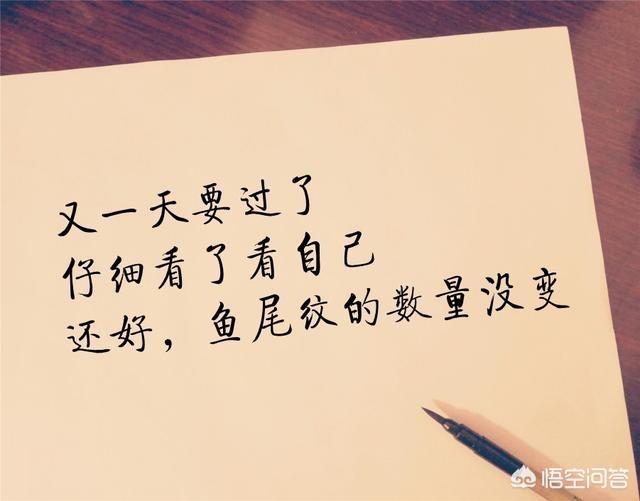 又一天要过了
仔细看了看自己
还好，鱼尾纹的数量没变
悟空问答